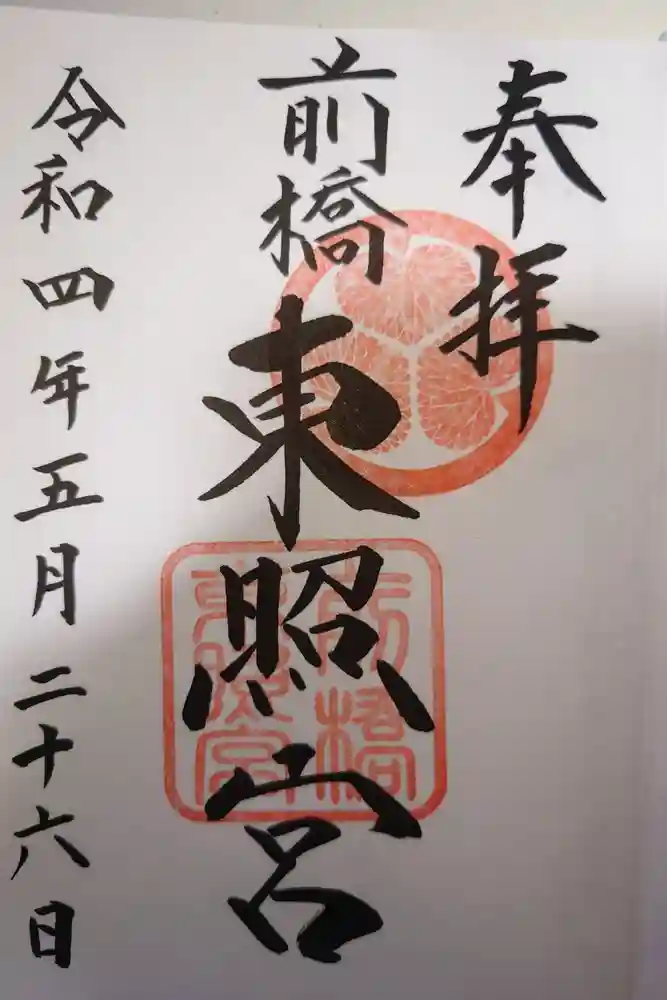 奉拝
前橋東照宮
令和四年五月二十六日
前橋
東照宮